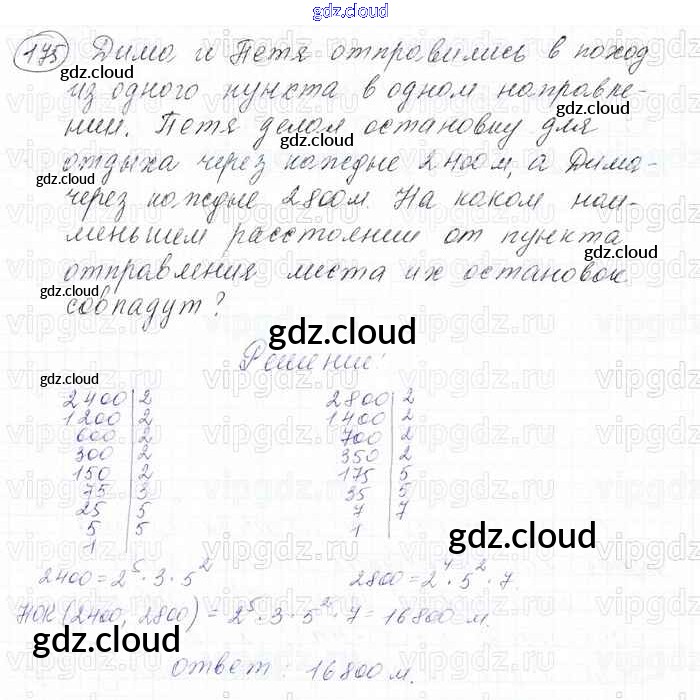 gdz.cloud
175 Дима и Петя отправились в поход
gdz.cloud
из одного пункта в одном направле-
gdz.cloud
нии. Петя делал остановку для
gdz.cloud
отдыха через каждые 2400м, а Дима-
gdz.cloud
через каждые 2800м. На каком наи-
меньшем расстоянии от пункта
gdz.cloud
отправления места их остановок
gdz.cloud
совпадут?
gdz.cloud
Решение:
gdz.cloud
2400 | 2 2800 | 2
1200 | 2 1400 | 2
600 | 2 700 | 2
300 | 2 350 | 2
150 | 2 175 | 5
75 | 3 35 | 5
25 | 5 7 | 7
5 | 5 1
1
gdz.cloud
2400 = 2⁵ · 3 · 5² 2800 = 2⁴ · 5² · 7.
НОК (2400, 2800) = 2⁵ · 3 · 5² · 7 = 16800 м.
gdz.cloud
ответ: 16800 м.
gdz.cloud
vipgdz.ru